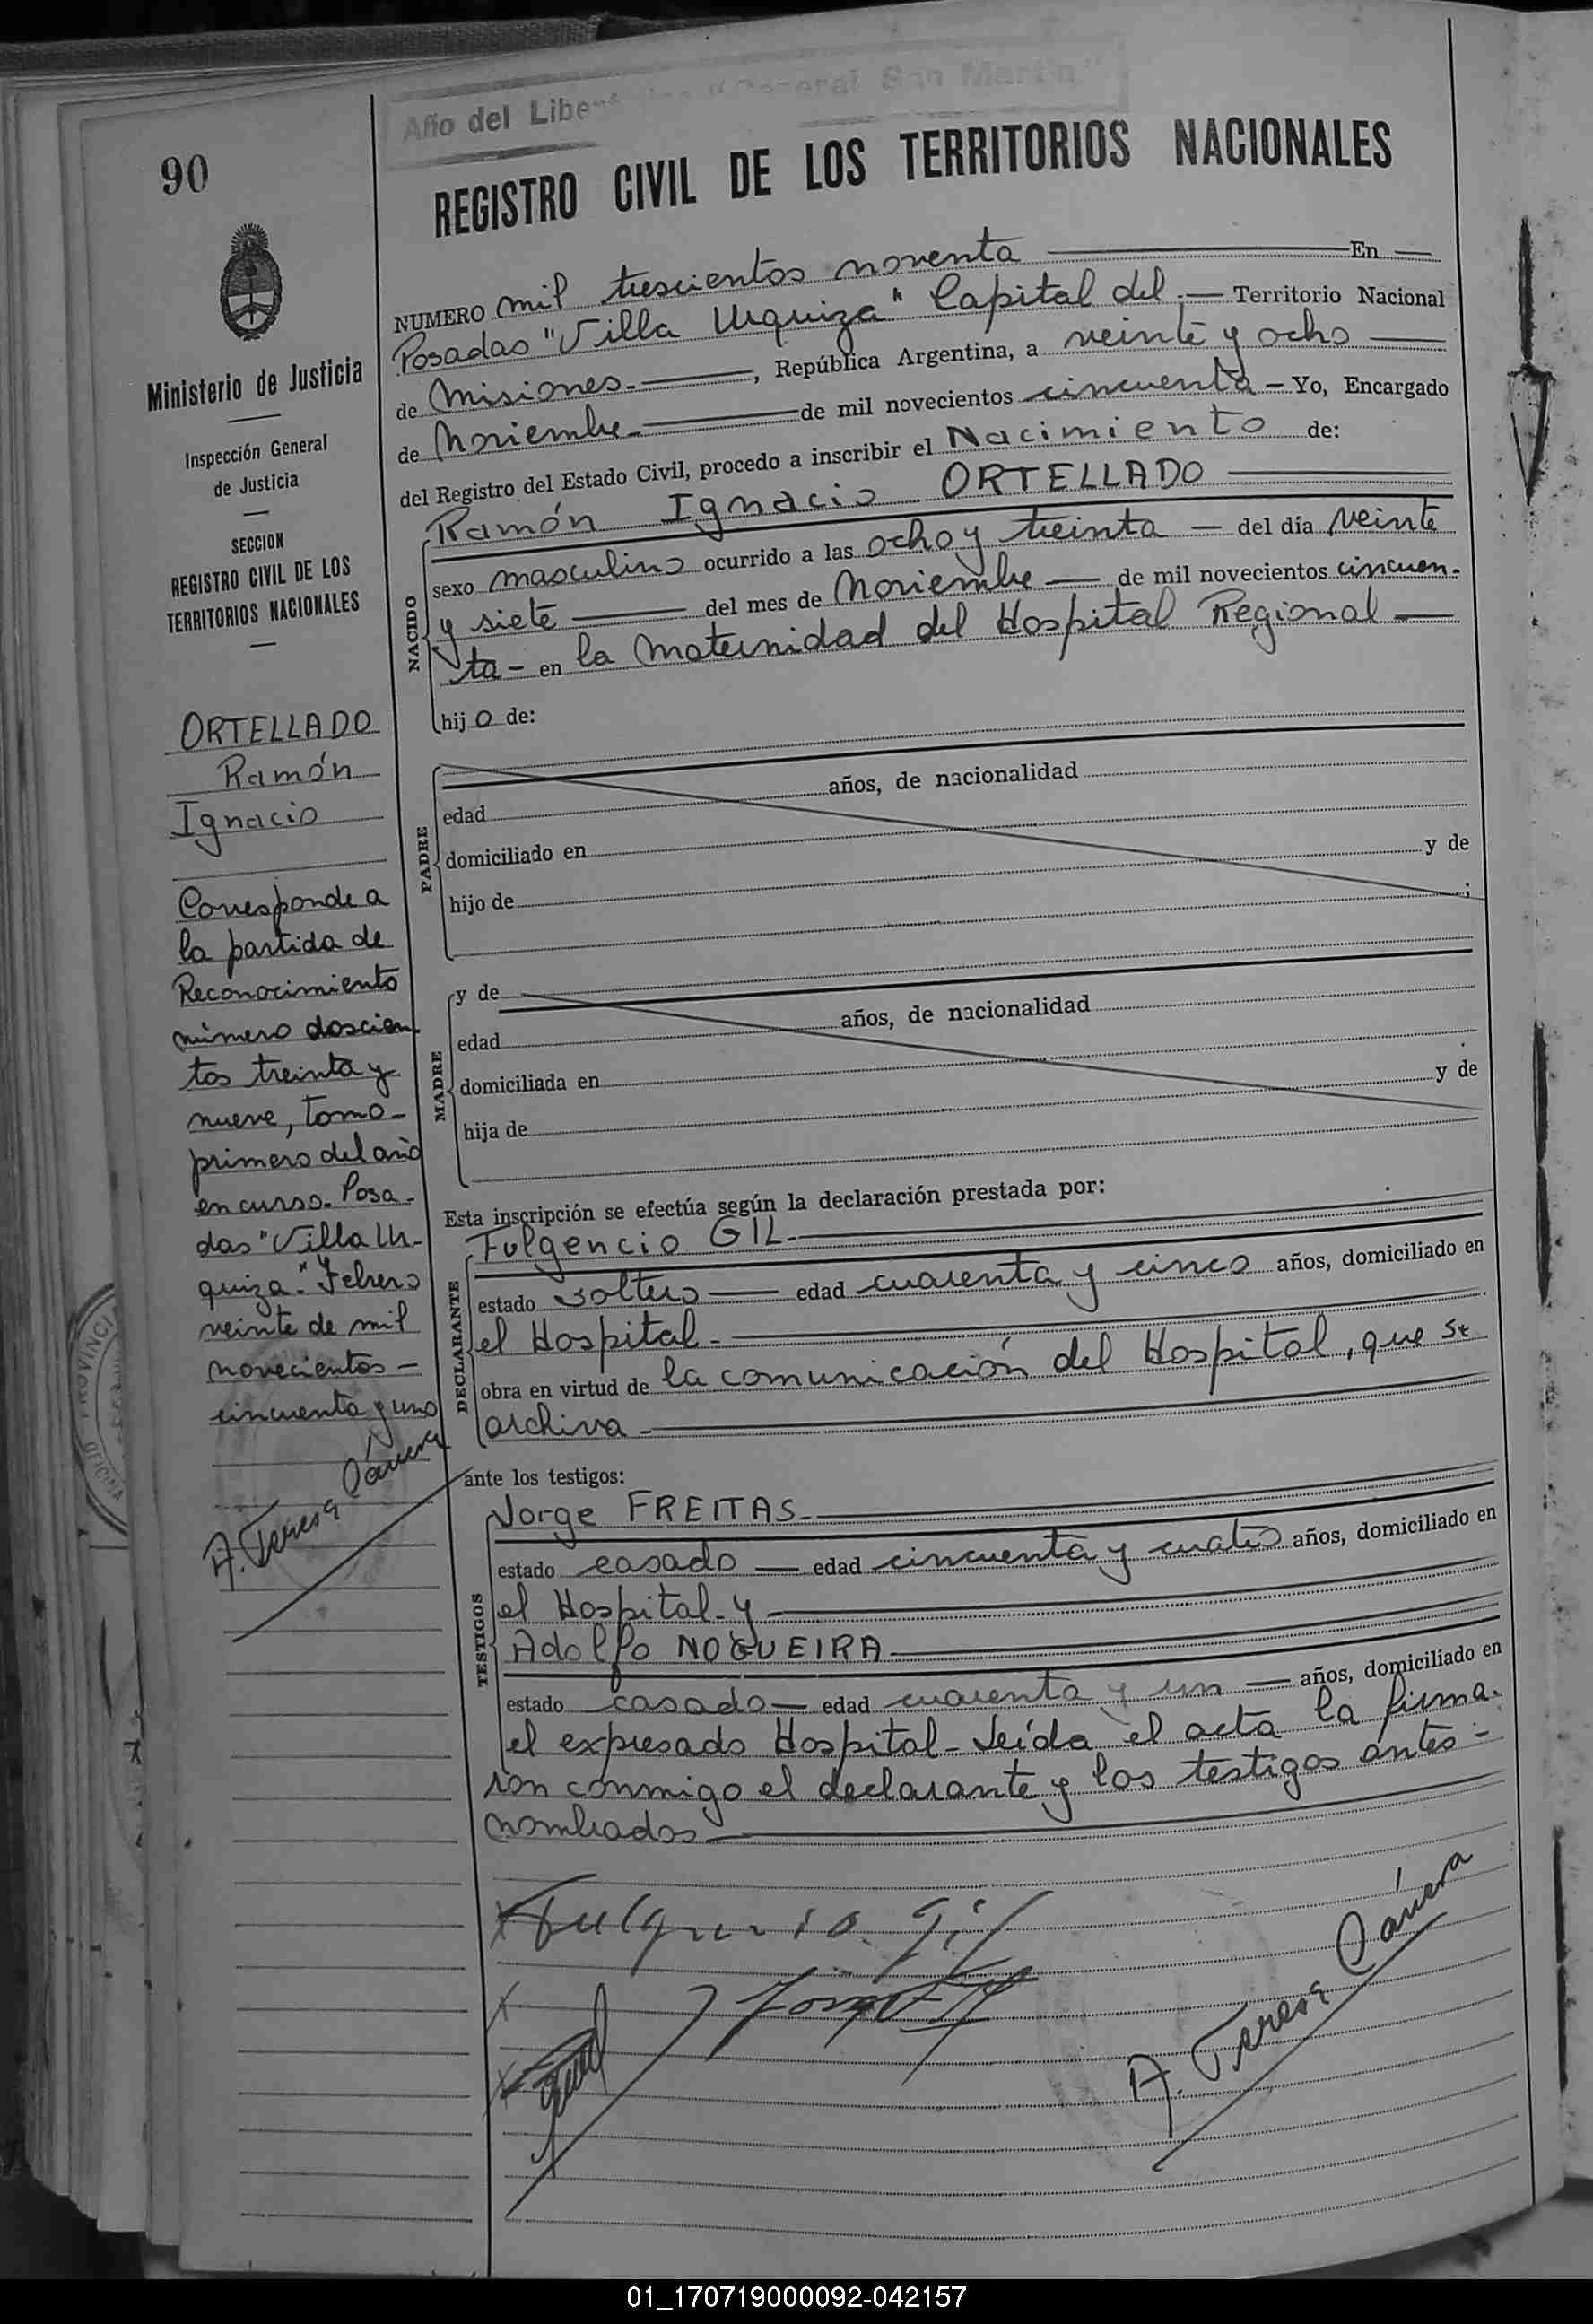 Año del Libertador "General San Martín"
90
REGISTRO CIVIL DE LOS TERRITORIOS NACIONALES
NUMERO mil trescientos noventa En
Posadas "Villa Urquiza" Capital del Territorio Nacional
de Misiones, República Argentina, a veinte y ocho
de Noviembre de mil novecientos cincuenta Yo, Encargado
del Registro del Estado Civil, procedo a inscribir el Nacimiento de:
Ramón Ignacio ORTELLADO
NACIDO
sexo masculino ocurrido a las ocho y treinta del día veinte
y siete del mes de Noviembre de mil novecientos cincuen-
ta - en la Maternidad del Hospital Regional
hijo de:
PADRE
edad años, de nacionalidad
domiciliado en
hijo de y de
;
MADRE
y de
edad años, de nacionalidad
domiciliada en
hija de y de
Esta inscripción se efectúa según la declaración prestada por:
DECLARANTE
Fulgencio GIL
estado soltero edad cuarenta y cinco años, domiciliado en
el Hospital
obra en virtud de la comunicación del Hospital, que se
archiva
ante los testigos:
TESTIGOS
Jorge FREITAS
estado casado edad cincuenta y cuatro años, domiciliado en
el Hospital y
Adolfo NOGUEIRA
estado casado edad cuarenta y un años, domiciliado en
el expresado Hospital - Leída el acta la firma-
ron conmigo el declarante y los testigos antes
nombrados
Fulgencio Gil
A. Teresa
Ministerio de Justicia
Inspección General
de Justicia
SECCION
REGISTRO CIVIL DE LOS
TERRITORIOS NACIONALES
ORTELLADO
Ramón
Ignacio
Corresponde a
la partida de
Reconocimiento
número doscien-
tos treinta y
nueve, tomo
primero del año
en curso. Posa-
das "Villa Ur-
quiza". Febrero
veinte de mil
novecientos
cincuenta y uno
A. Teresa
PROVINCI
OFICINA
01_170719000092-042157